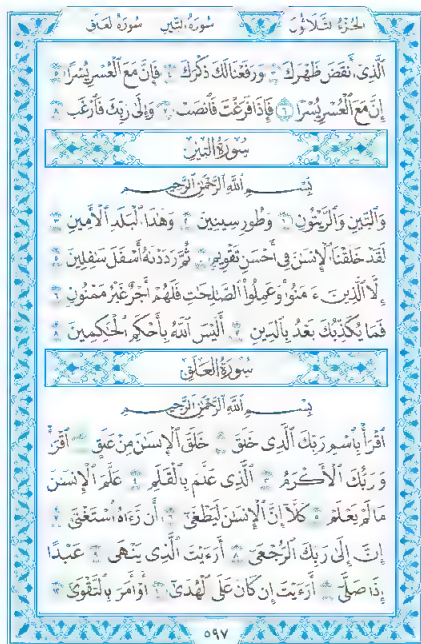 الجزء الثلاثون سورة التين سورة العلق
الَّذِي أَنقَضَ ظَهْرَكَ ٣ وَرَفَعْنَا لَكَ ذِكْرَكَ ٤ فَإِنَّ مَعَ الْعُسْرِ يُسْرًا ٥
إِنَّ مَعَ الْعُسْرِ يُسْرًا ٦ فَإِذَا فَرَغْتَ فَانصَبْ ٧ وَإِلَىٰ رَبِّكَ فَارْغَب ٨
سُورَةُ التِّينِ
بِسْمِ اللَّهِ الرَّحْمَٰنِ الرَّحِيمِ
وَالتِّينِ وَالزَّيْتُونِ ١ وَطُورِ سِينِينَ ٢ وَهَٰذَا الْبَلَدِ الْأَمِينِ ٣
لَقَدْ خَلَقْنَا الْإِنسَٰنَ فِي أَحْسَنِ تَقْوِيمٍ ٤ ثُمَّ رَدَدْنَٰهُ أَسْفَلَ سَٰفِلِينَ ٥
إِلَّا الَّذِينَ ءَامَنُوا وَعَمِلُوا الصَّٰلِحَٰتِ فَلَهُمْ أَجْرٌ غَيْرُ مَمْنُونٍ ٦
فَمَا يُكَذِّبُكَ بَعْدُ بِالدِّينِ ٧ أَلَيْسَ اللَّهُ بِأَحْكَمِ الْحَٰكِمِينَ ٨
سُورَةُ الْعَلَقِ
بِسْمِ اللَّهِ الرَّحْمَٰنِ الرَّحِيمِ
اقْرَأْ بِاسْمِ رَبِّكَ الَّذِي خَلَقَ ١ خَلَقَ الْإِنسَٰنَ مِنْ عَلَقٍ ٢ اقْرَأْ
وَرَبُّكَ الْأَكْرَمُ ٣ الَّذِي عَلَّمَ بِالْقَلَمِ ٤ عَلَّمَ الْإِنسَٰنَ
مَا لَمْ يَعْلَمْ ٥ كَلَّا إِنَّ الْإِنسَٰنَ لَيَطْغَىٰ ٦ أَن رَّءَاهُ اسْتَغْنَىٰ ٧
إِنَّ إِلَىٰ رَبِّكَ الرُّجْعَىٰ ٨ أَرَءَيْتَ الَّذِي يَنْهَىٰ ٩ عَبْدًا
إِذَا صَلَّىٰ ١٠ أَرَءَيْتَ إِن كَانَ عَلَى الْهُدَىٰ ١١ أَوْ أَمَرَ بِالتَّقْوَىٰ ١٢
٥٩٧